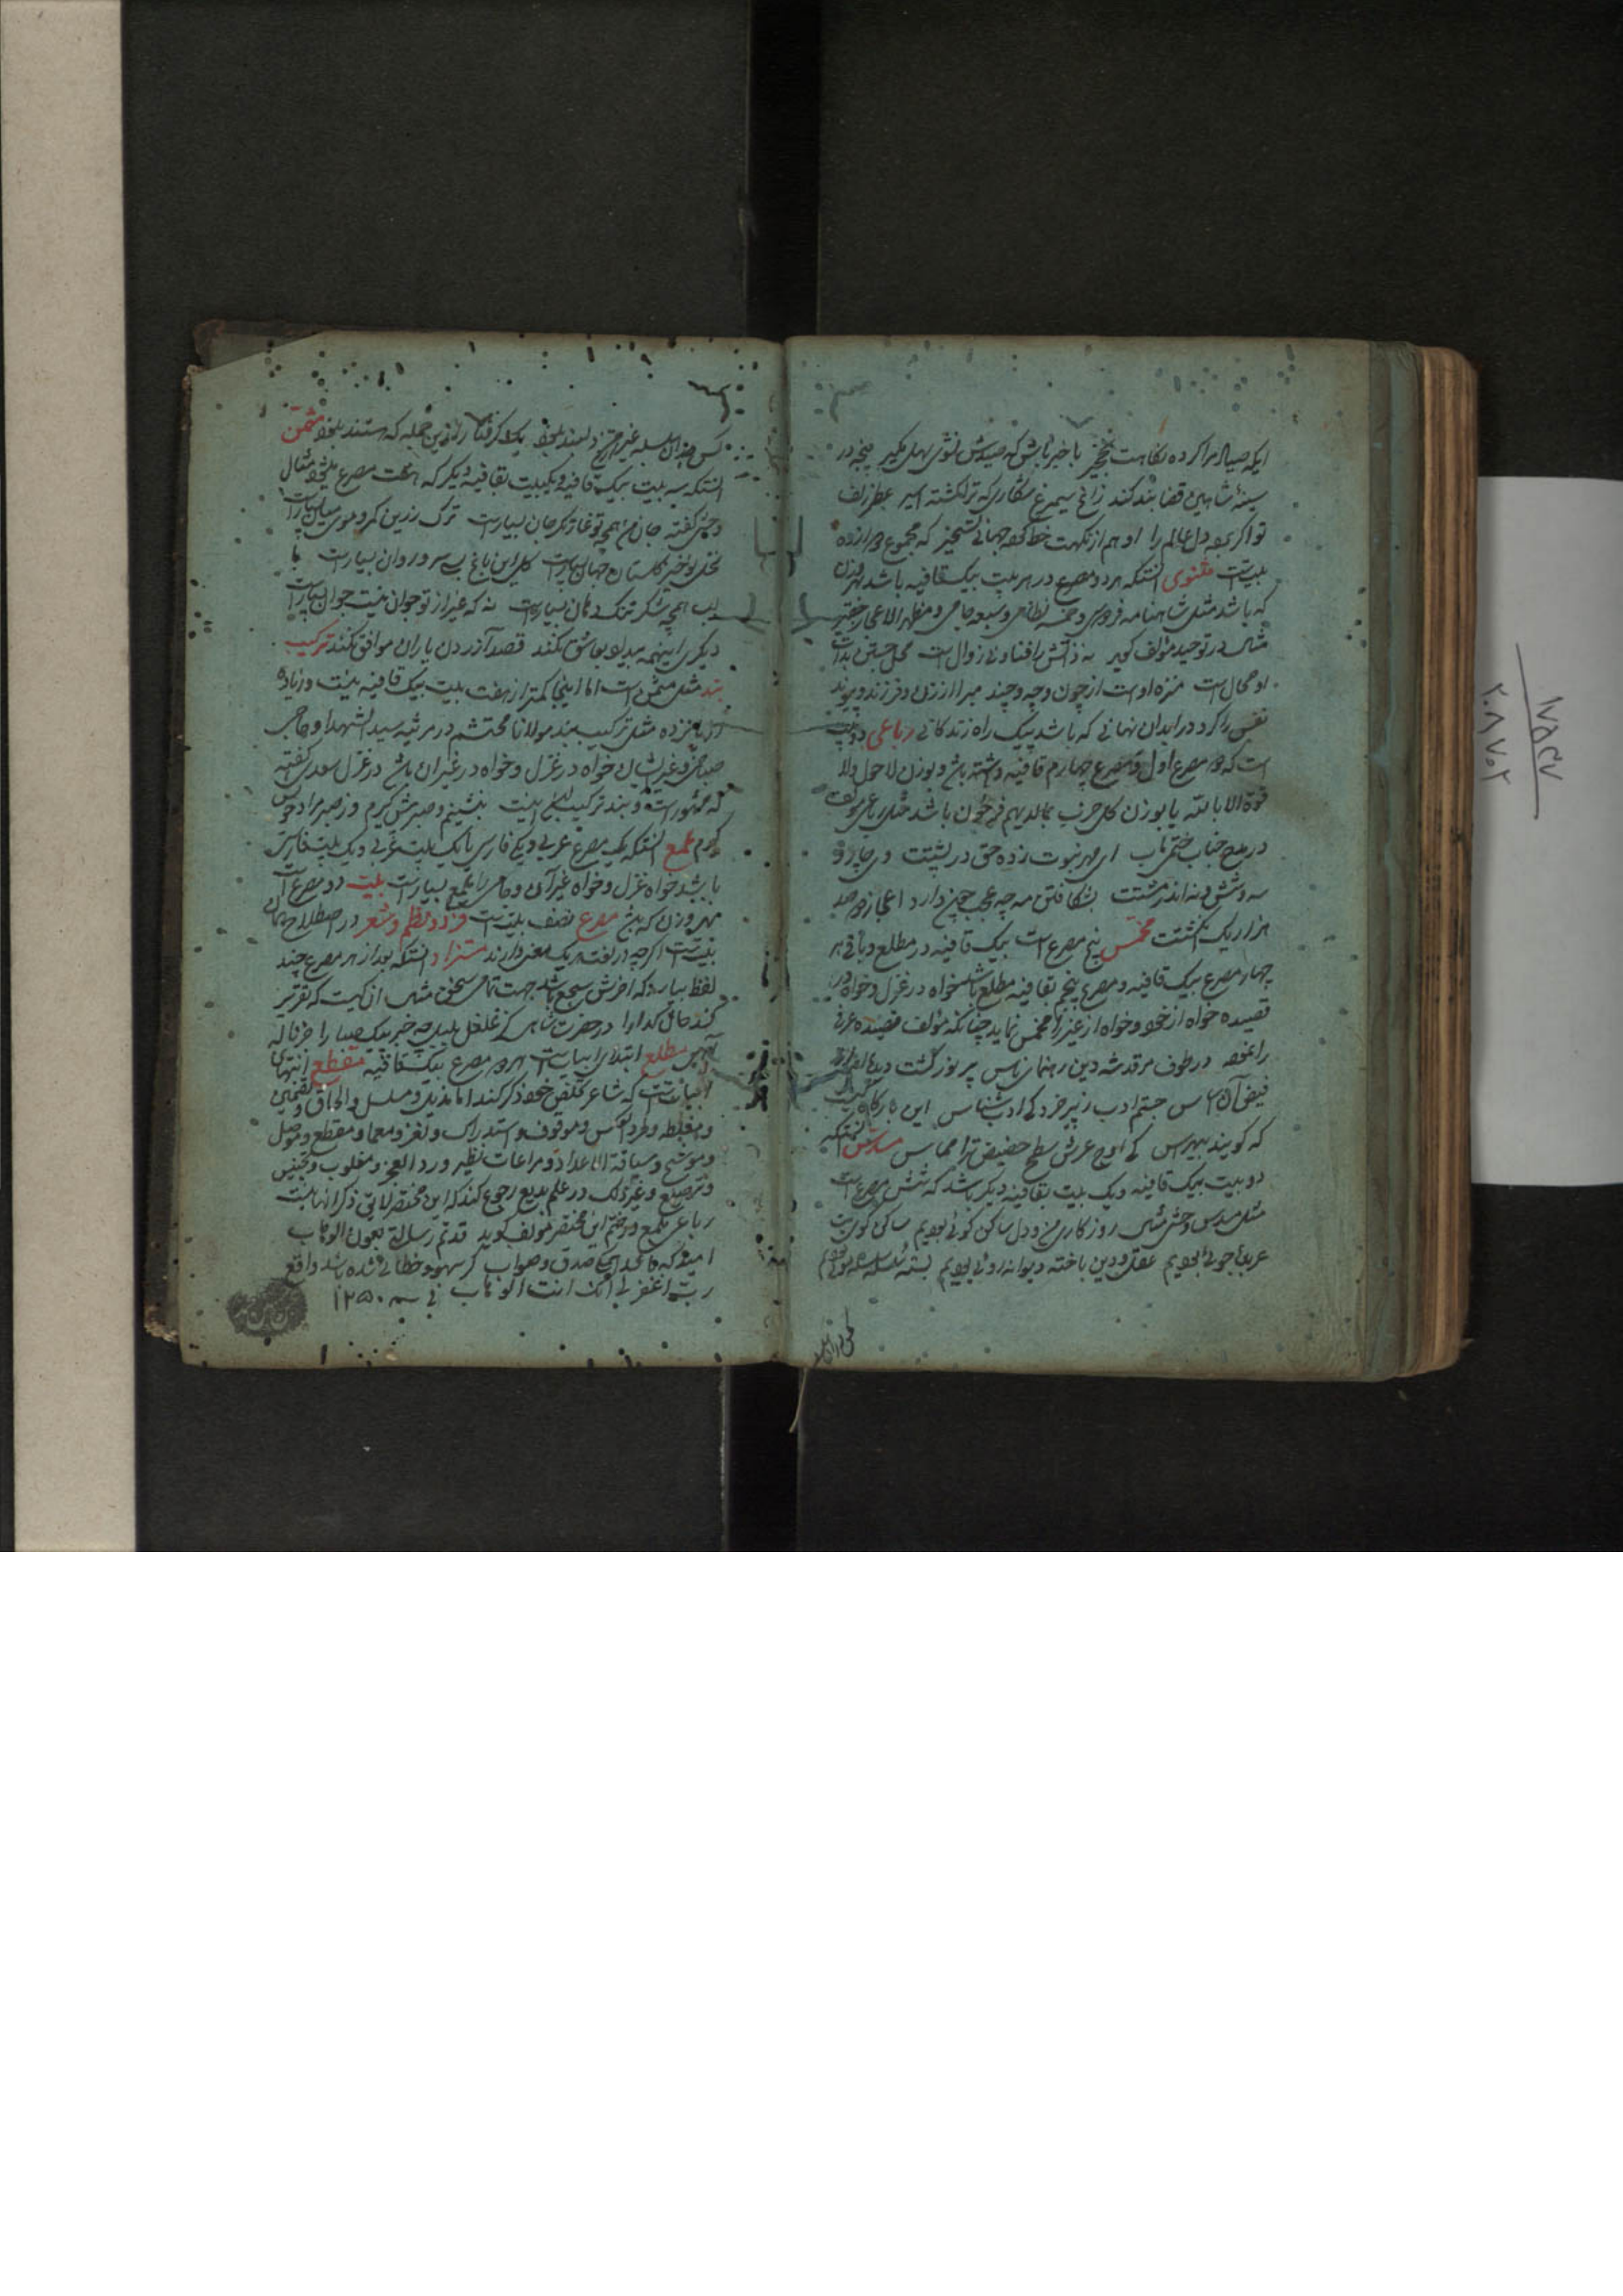 ایکه صیاد مرا کرده نکاهت نخجیر با خبر باش که صیدش نشوی سهل مکیر پنجه در
سینهٔ شاهین قضا بند کند زاغ سیمرغ شکاری که ترا کشته اسیر عطر زلف
تو اکر دل عالم را او هم از نکهت خط جهانی تسخیر که مجموع دوازده
بیتست مثنوی آنستکه هر دو مصرع در هر بیت بیک قافیه باشد بهر وزن
که باشد مثل شاهنامه فردوسی و خمسه نظامی و سبعه جامی و مظهر الاعجاز حقیر
مثال در توحید مؤلف کوید نه ذاتش را فنا و نی زوال است
او محال است منزه اوست از چون و چه و چند مبرا از زن و فرزند و پیوند
نفس را کرد در ابدان نهانی که باشد پیک راه زندکانی رباعی دو بیت
است که در مصرع اول و مصرع چهارم قافیه داشته باشد و بوزن لا حول ولا
قوة الا بالله یا بوزن کل حزب بما لدیهم فرحون باشد مثل رباعی مؤلف
در مدح جناب ختمی مآب ای مهر نبوت زده حق در پشتت وی چار و
سه و شش و نه اندر مشتت بشکافتن مه چه عجب چون دارد اعجاز دو صد
هزار یک انکشتت مخمس پنج مصرع است بیک قافیه در مطلع و باقی هر
چهار مصرع بیک قافیه و مصرع پنجم بقافیه مطلع باشد خواه در غزل و خواه در
قصیده خواه از خود و خواه از غیر را مخمس نماید چنانکه مؤلف قصیده عرفی
را نموده در طوف مرقد شه دین رهنمای ناس پر نور کشت دیده
فیض جستم ادب ز پیر خرد کای ادب شناس این بارکاه کیست
که کویند بیهراس کای اوج عرش سطح حضیض ترا مماس مسدس آنستکه
دو بیت بیک قافیه و یک بیت بقافیه دیکر باشد که شش مصرع است
مثل مسدس وحشی مثال روزکاری من و دل ساکن کوئی بودیم ساکن کوی بت
عربده جوئی بودیم عقل و دین باخته دیوانه روئی بودیم بستهٔ سلسلهٔ سلسله موئی بودیم
کس در آن سلسله غیر از من و دلبند نبود یک کرفتار ازین جمله که هستند نبود مثمن
آنستکه سه بیت بیک قافیه و یک بیت بقافیه دیکر که هشت مصرع باشد مثال
وحشی کفته جان من همچو تو غارتکر جان بسیار است ترک زرین کمر و موی میان بسیار است
نخل نوخیز کلستان جهان بسیار است کل این باغ بسی سرو روان بسیار است با
لب همچو شکر تنک دهان بسیار است نه که غیر از تو جوان نیست جوان بسیار است
دیکری اینهمه بیداد بعاشق نکند قصد آزردن یاران موافق نکند ترکیب
بند مثل مثمن است اما اینجا کمتر از هفت بیت بیک قافیه نیست و زیاده
از پانزده مثل ترکیب بند مولانا محتشم در مرثیه سید الشهدا و حاجی
صباحی و غیر ایشان خواه در غزل و خواه در غیر آن باشد در غزل سعدی کفته
که مشهور است و بند ترکیب این است بنشینم و صبر پیش کیرم
ملمع آنستکه یک مصرع عربی و یکی فارسی یا یک بیت عربی و یک بیت فارسی
باشد خواه غزل و خواه غیر آن و جامی را ملمع بسیار است بیت دو مصرع است
بهر وزن که باشد مصرع نصف بیت است فرد و نظم و شعر در اصطلاح همان
بیتست اکرچه در لغت هر یک معنی دارند مستزاد آنستکه بعد از هر مصرع چند
لفظ بیارند که آخرش مسجع باشد جهت تمامی سخن مثال آن کیست که تقریر
کند حال کدا را در حضرت شاهی کز غلغل بلبل چه خبر پیک صبا را جز ناله
مطلع ابتدای ابیاتست هر دو مصرع بیک قافیه مقطع انتهای
ابیاتست که شاعر تخلص خود ذکر کند اما مذیل و مسلسل و الحاق و تضمین
و مغلطه و طرد و عکس و موقوف و استدراک و لغز و معما و مقطع و موصل
و موشح و سیاقة الاعداد و مراعات نظیر و رد العجز و مقلوب و تجنیس
و ترصیع و غیر ذلک در علم بدیع رجوع کنند که این مختصر لایق ذکر آنها نیست
رباعی ملمع در ختم این مختصر مؤلف کوید قد تم رسالتی بعون الوهاب
امید که صدق و صواب کر سهو و خطائی شده باشد واقع
رب اغفر لی انک انت الوهاب فی سنه ۱۲۵۰
۱۷۵۴۷
۲۰۸۷۰۲